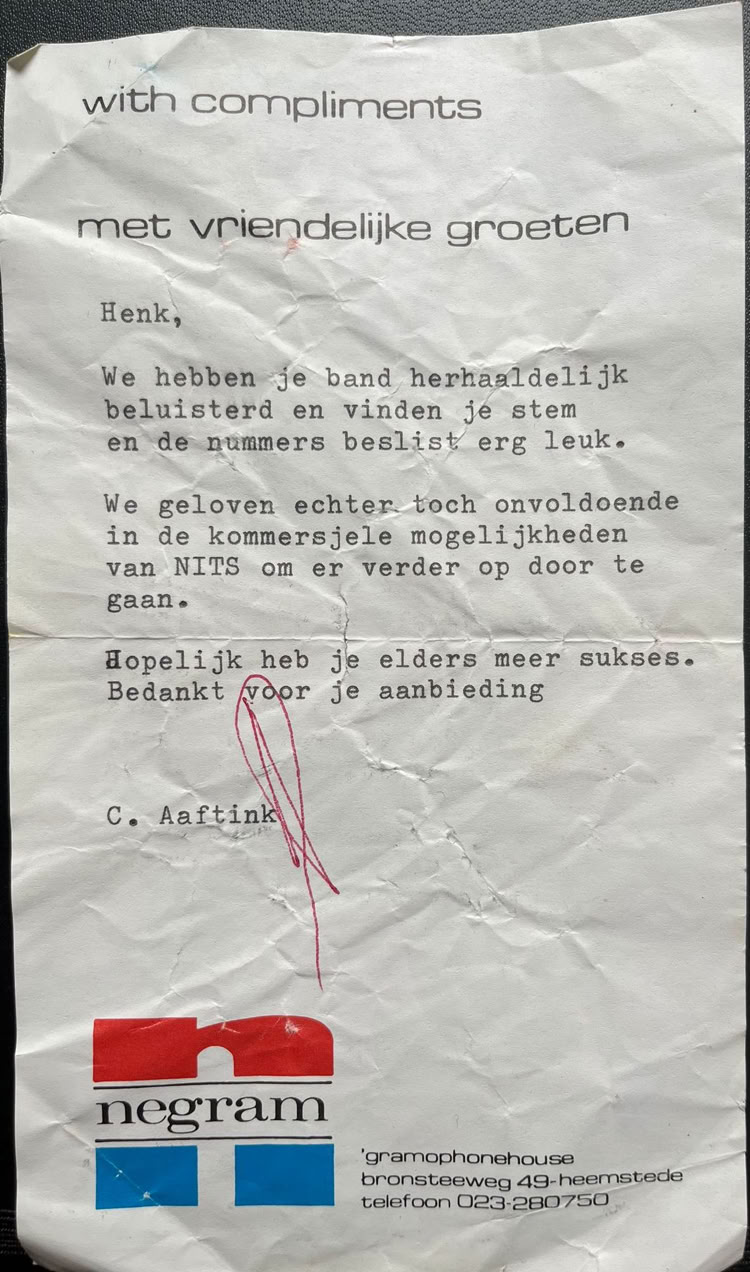 with compliments
met vriendelijke groeten
Henk,
We hebben je band herhaaldelijk
beluisterd en vinden je stem
en de nummers beslist erg leuk.
We geloven echter toch onvoldoende
in de kommersjele mogelijkheden
van NITS om er verder op door te
gaan.
Hopelijk heb je elders meer sukses.
Bedankt voor je aanbieding
C. Aaftink
n
negram
'gramophonehouse
bronsteeweg 49-heemstede
telefoon 023-280750